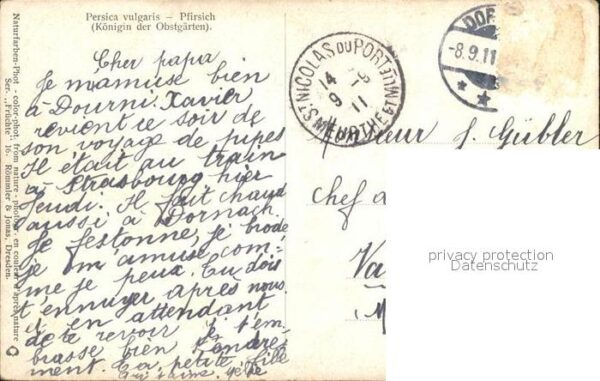 Persica vulgaris – Pfirsich
(Königin der Obstgärten).
Naturfarben-Phot. - color-phot. from nature - photogr. en couleurs d'après nature
Ser. „Früchte" 16. Römmler & Jonas, Dresden.
Cher papa
Je m'amuse bien
à Dourni. Xavier
revient ce soir de
son voyage de pipes
Il était au train
à Strasbourg hier
Jeudi. Il fait chaud
aussi à Dornach.
Je festonne, je brode
je m'amuse com-
me je peux. Tu dois
t'ennuyer après nous.
et en attendant
de te revoir je t'em-
brasse bien tendre-
ment. Ta petite fille
qui t'aime
ST NICOLAS DU PORT
MEURTHE ET MELLE
14
9
11
DOR
-8.9.11
Monsieur J. Gübler
Chef d
Va
M
privacy protection
Datenschutz